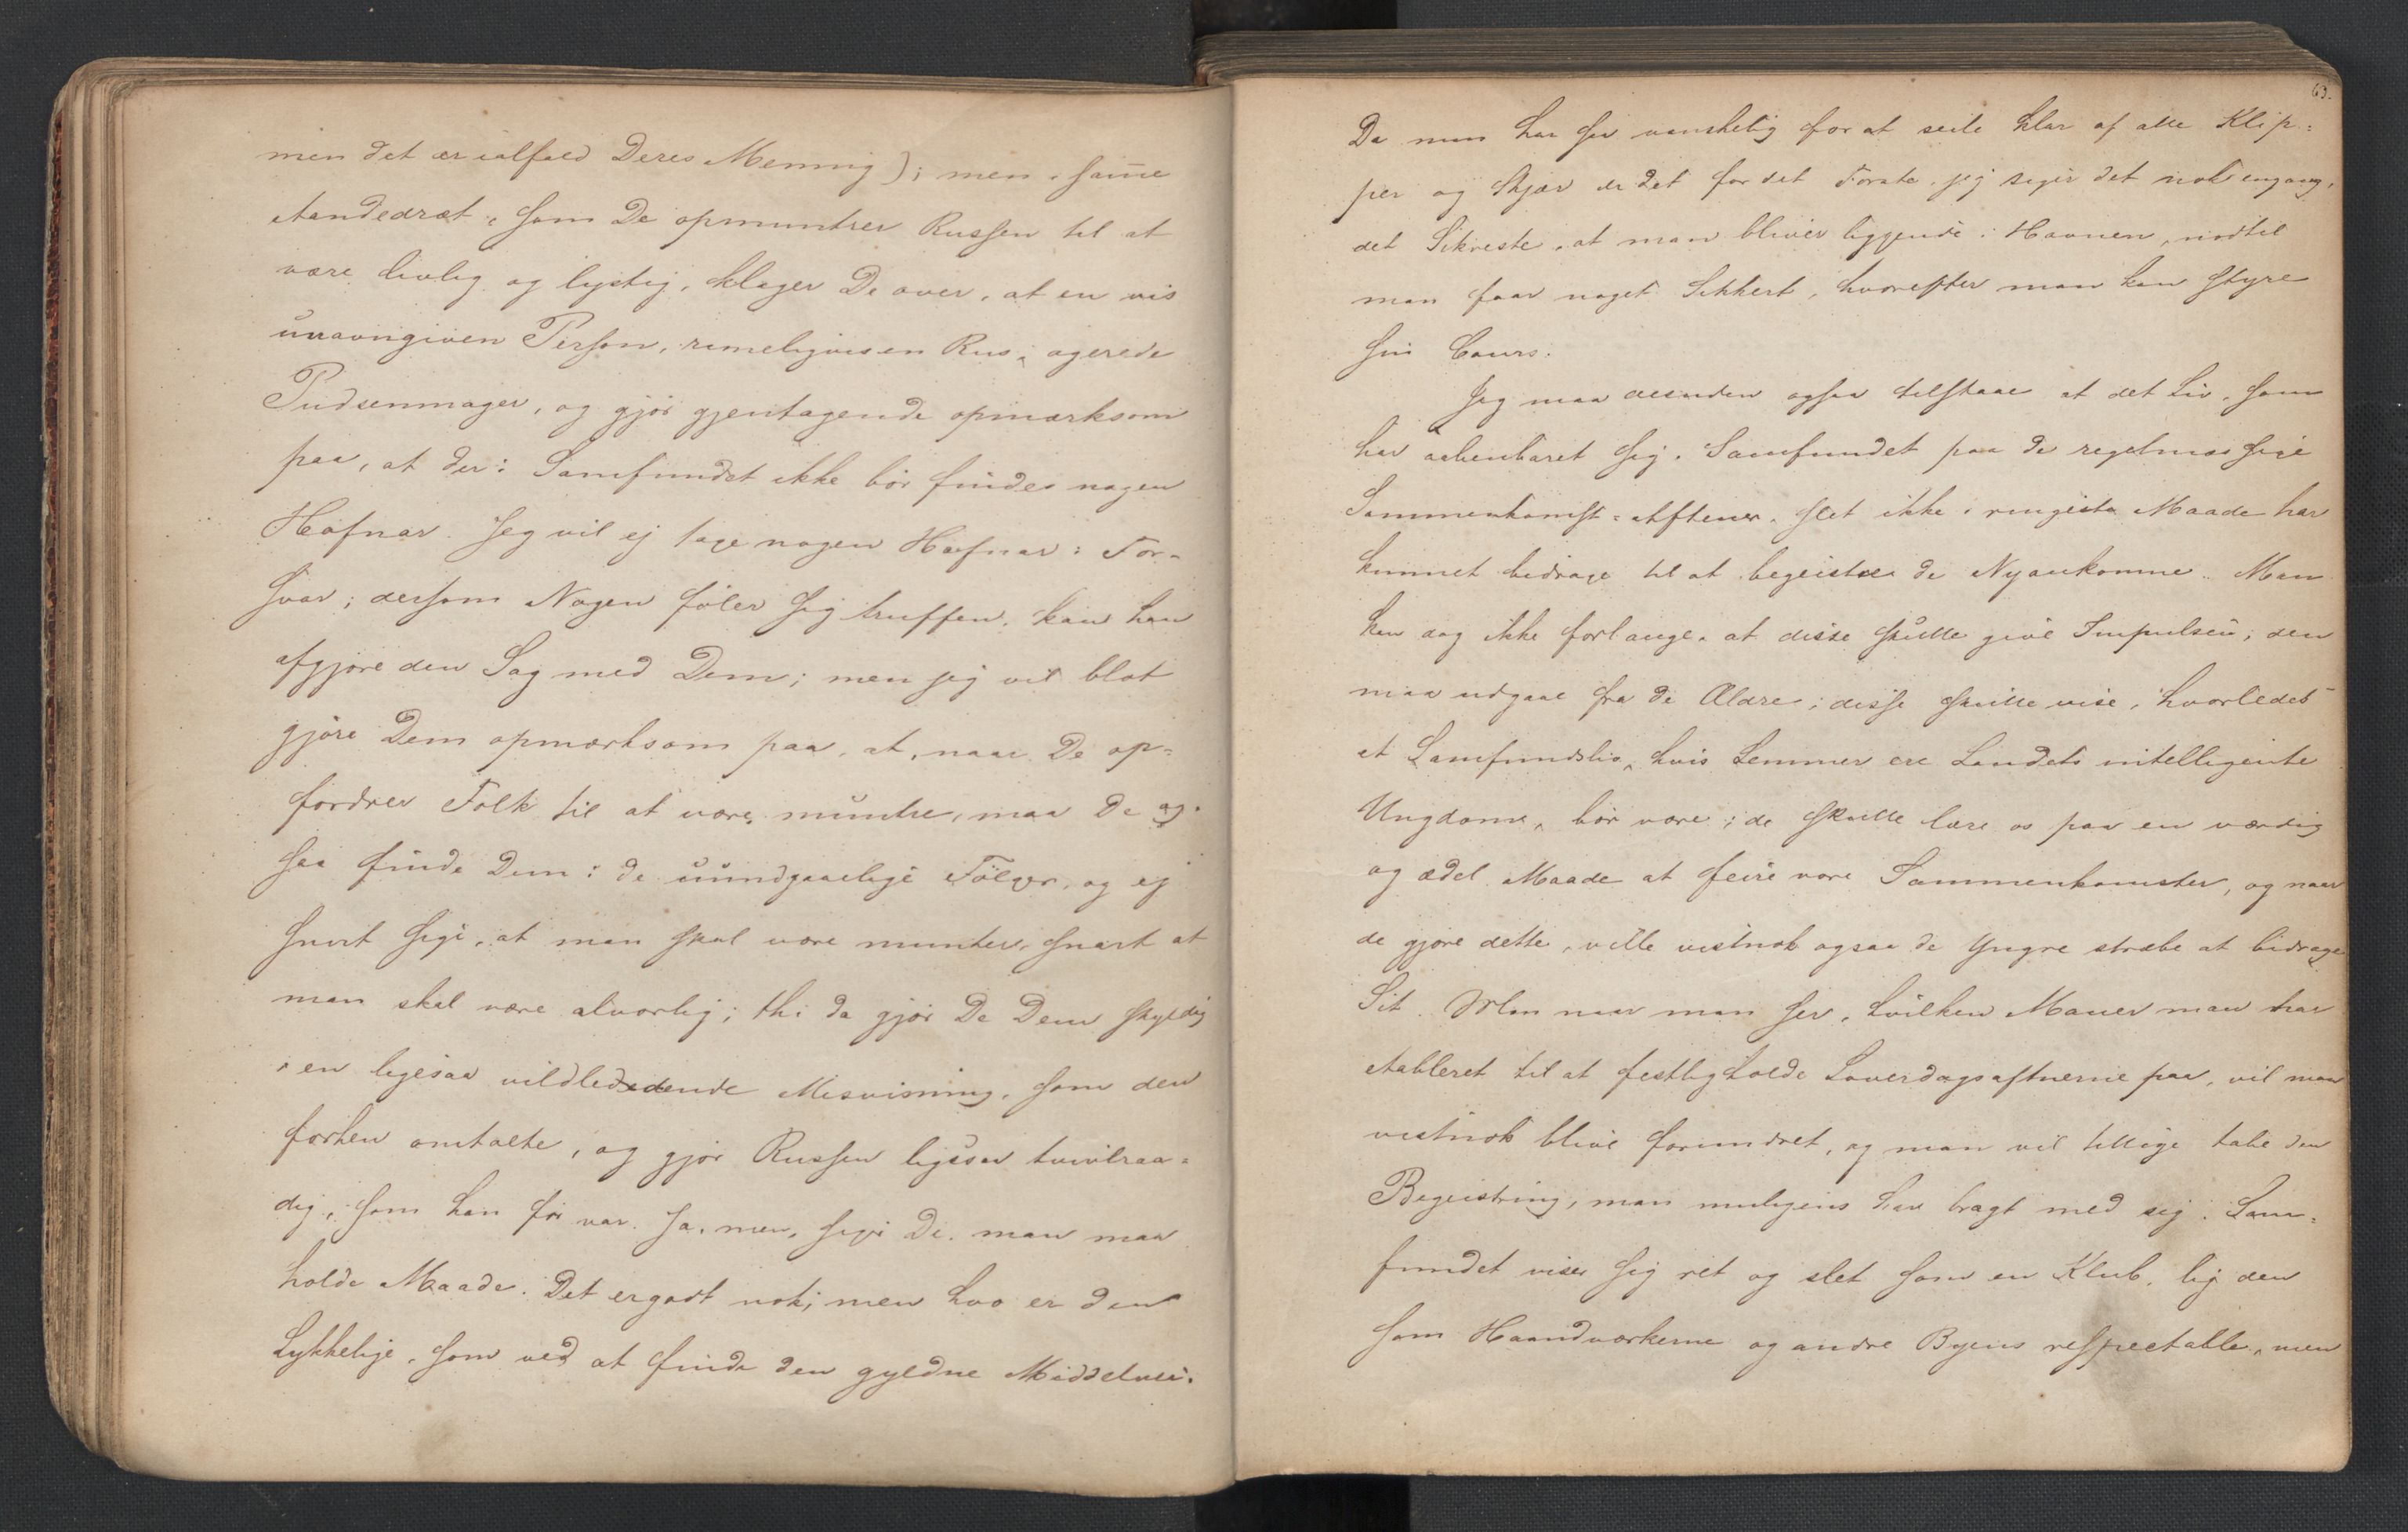 men det er ialfald Deres Mening); men i samme
Aandedræt, som De opmuntrer Russen til at
være livlig og lystig, klager De over, at en vis
unavngiven Person, rimeligvis en Rus, agerede
Pudsenmager, og gjør gjentagende opmærksom
paa, at der i Samfundet ikke bør findes nogen
Hofnar. Jeg vil ej tage nogen Hofnar i For-
svar; dersom Nogen føler sig truffen, kan han
afgjøre den Sag med Dem; men jeg vil blot
gjøre Dem opmærksom paa, at, naar De op-
fordrer Folk til at være muntre, maa De og-
saa finde Dem i de uundgaaelige Følger, og ej
snart sige, at man skal være munter, snart at
man skal være alvorlig; thi da gjør De Dem skyldig
i en ligesaa vildledende Misvisning, som den
forhen omtalte, og gjør Russen ligesaa tvivlraa-
dig, som han før var. Ja, men, siger De, man maa
holde Maade. Det er godt nok; men hvo er den
Lykkelige, som ved at finde den gyldne Middelvei.
63.
Da man har saa vanskelig for at seile klar af alle Klip-
per og Skjær er det for det Første, jeg siger det nok engang,
det Sikreste, at man bliver liggende i Havnen, indtil
man faar noget Sikkert, hvorefter man kan styre
sin Cours.
Jeg maa desuden ogsaa tilstaae at det Liv, som
har aabenbaret sig i Samfundet paa de regelmæssige
Sammenkomst-Aftener, slet ikke i ringeste Maade har
kunnet bidrage til at begeistre de Nyankomne. Man
kan dog ikke forlange, at disse skulle give Impulsen; den
maa udgaae fra de Ældre; disse skulle vise, hvorledes
et Samfundsliv, hvis Lemmer ere Landets intelligente
Ungdom, bør være; de skulle lære os paa en værdig
og ædel Maade at feire vore Sammenkomster, og naar
de gjøre dette, ville vistnok ogsaa de Yngre stræbe at bidrage
Sit. Men naar man ser, hvilken Maneer man har
etableret til at festligholde Løverdagsaftnerne paa, vil man
vistnok blive forundret, og man vil tillige tabe den
Begeistring, man muligens har bragt med sig. Sam-
fundet viser sig ret og slet som en Klub, lig den
som Haandværkerne og andre Byens respectable, men